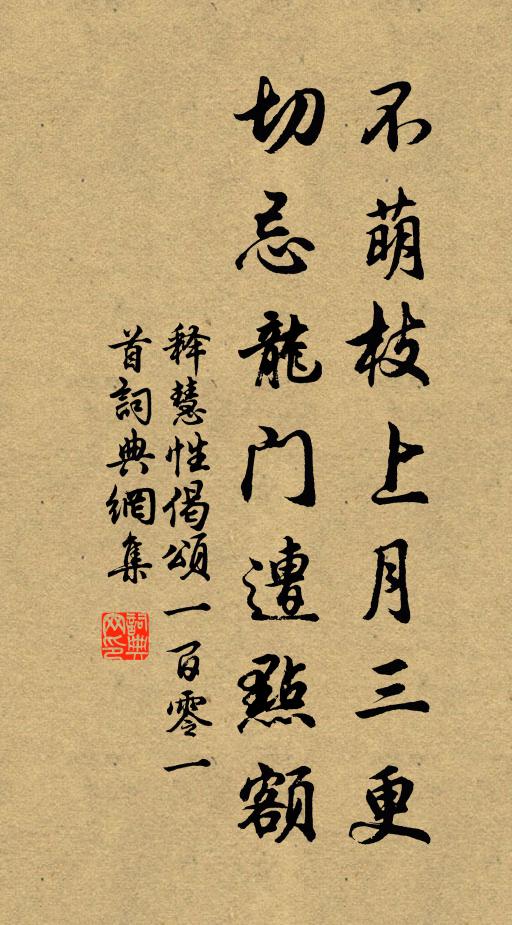 不萌枝上月三更
切忌龍门遭點額
释慧性偈頌一百零一
首詞典網集
詞典网印